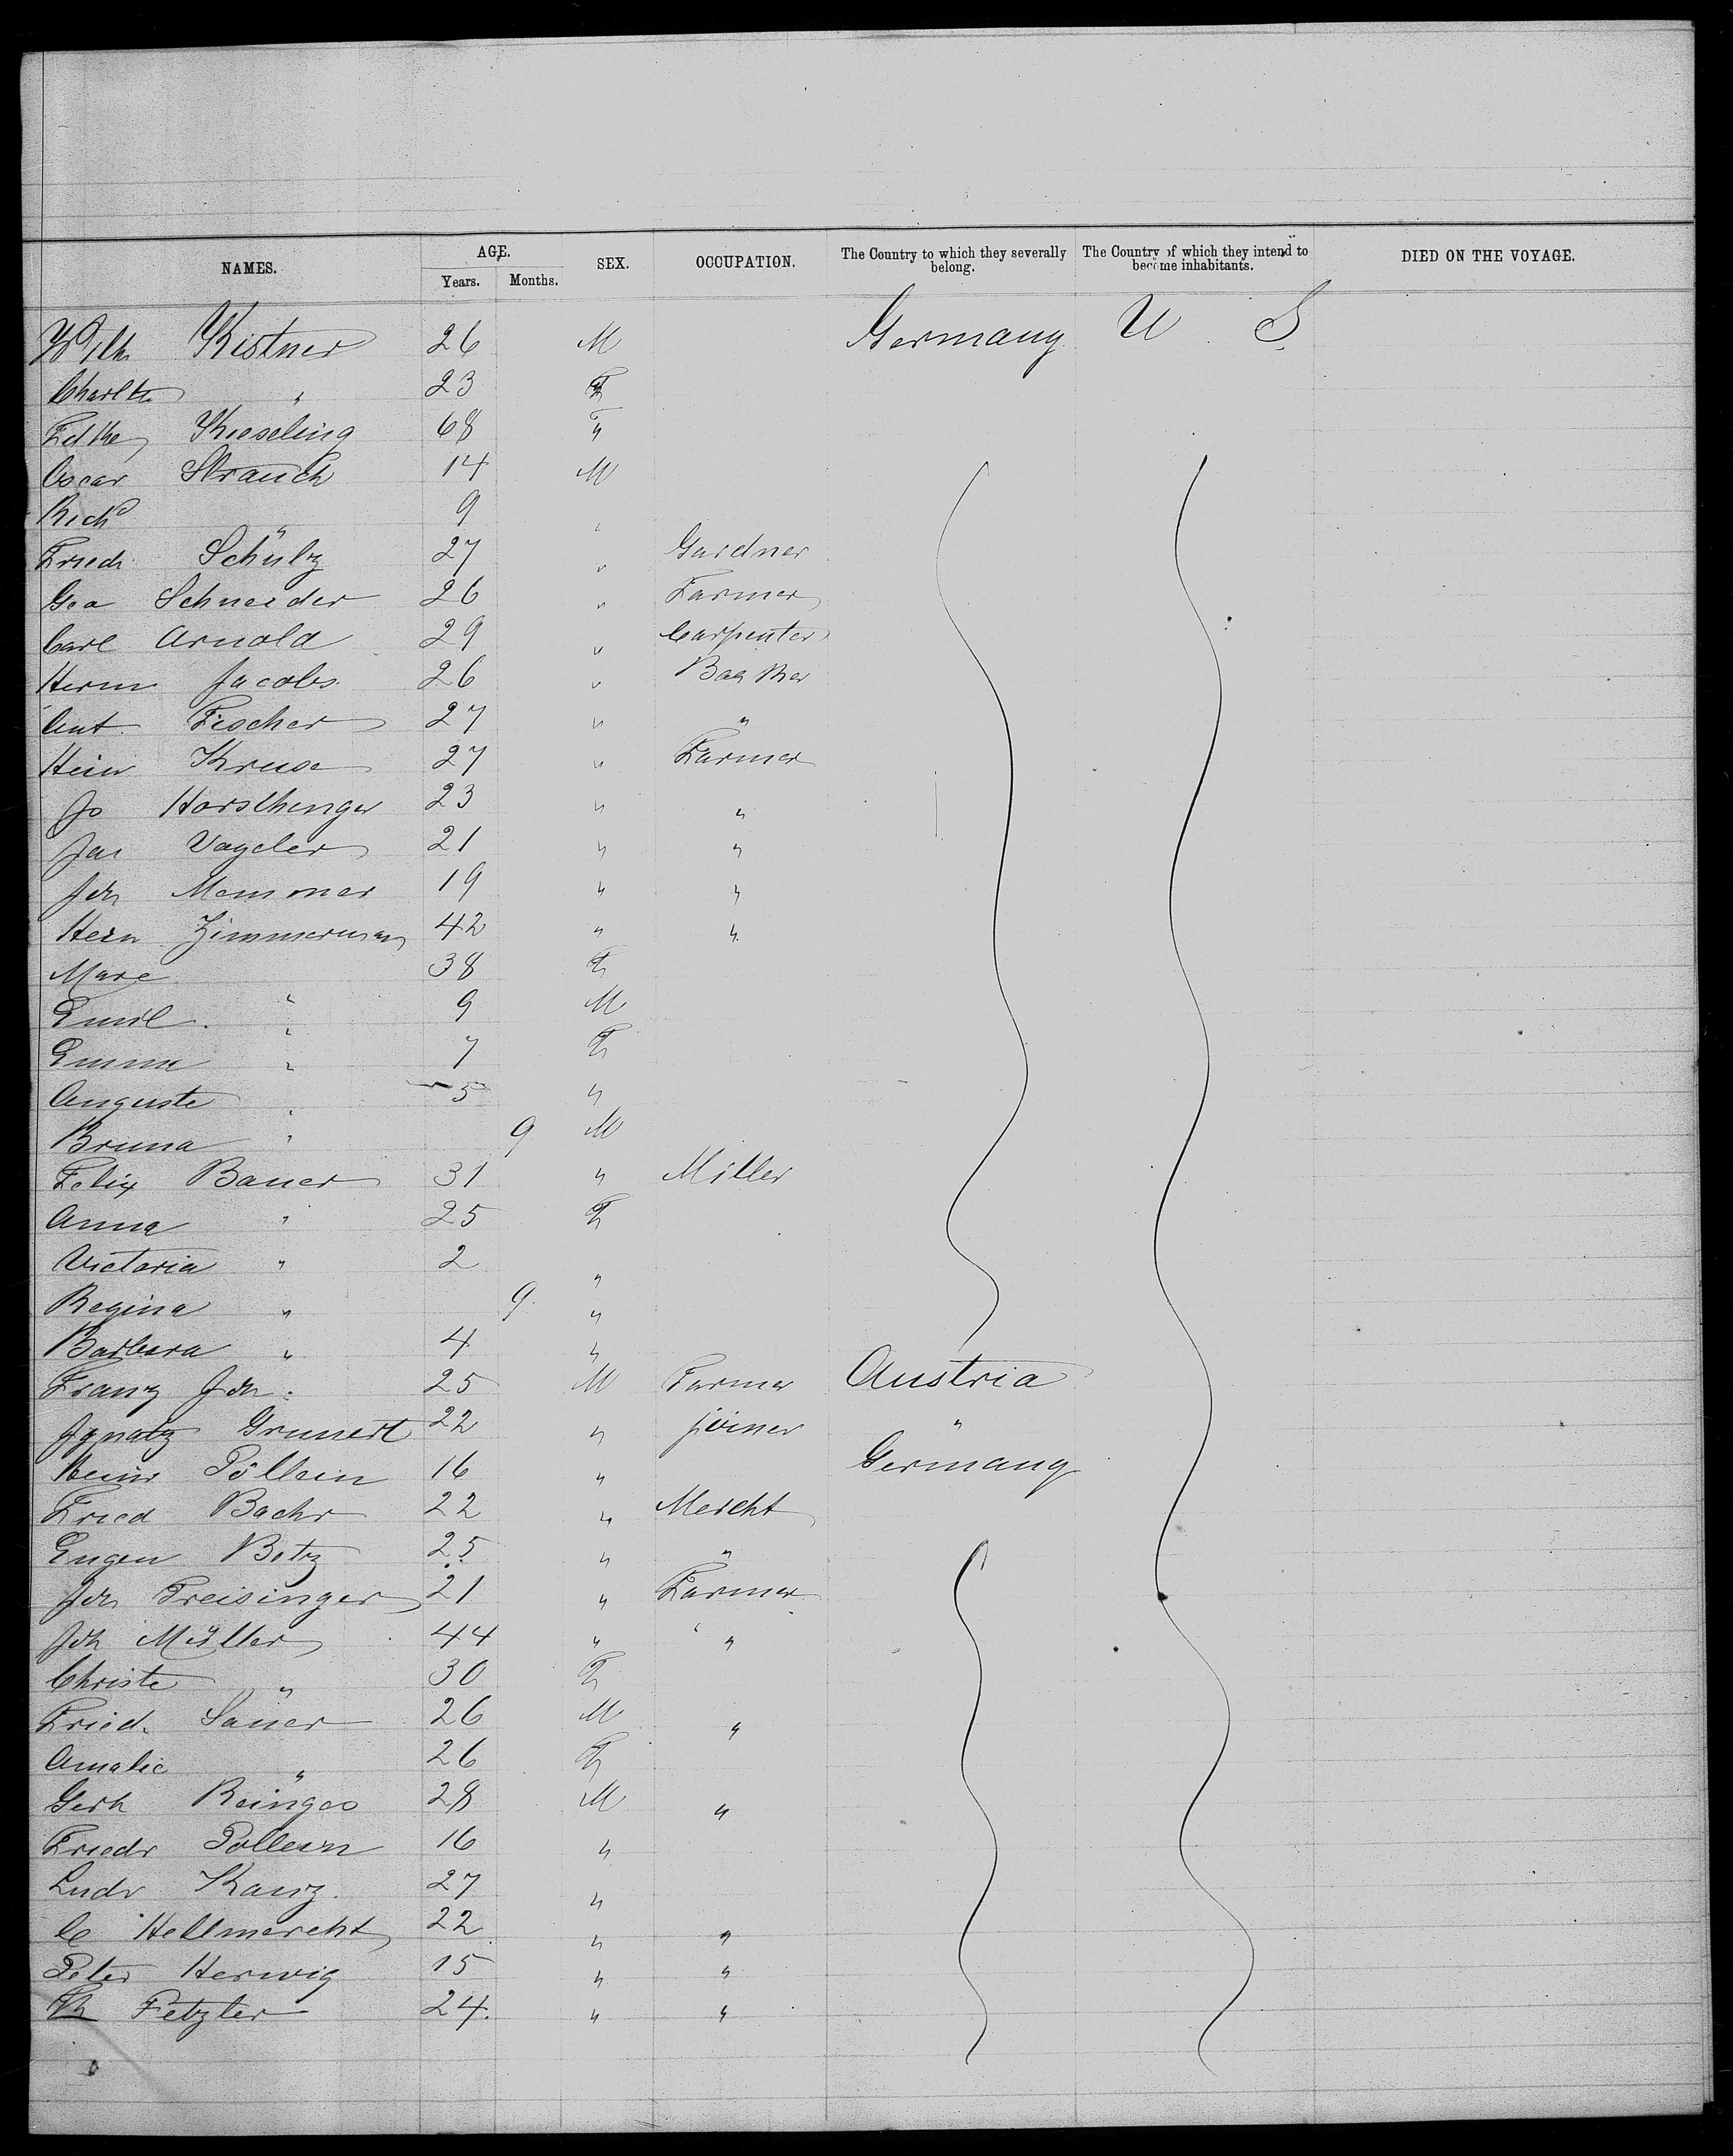 NAMES. AGE. SEX. OCCUPATION. The Country to which they severally belong. The Country of which they intend to become inhabitants. DIED ON THE VOYAGE.
Years. Months.
Wilh Kistner 26 M Germany U S
Charltte " 23 F
Kieseling 68 "
Oscar Strauch 14 M
Richd " 9 "
Friedr Schulz 27 " Gardner
Geo Schneider 26 " Farmer
Carl Arnold 29 " Carpenter
Herm Jacobs 26 "
Ant Fischer 27 " "
Heinr Kruse 27 " Farmer
Jo 23 " "
Jac Vogeler 21 " "
Joh Memmer 19 " "
Herm Zimmerman 42 " "
Marie 38 F
Emil " 9 M
Emma " 7 F
Auguste " 5 "
Bruno " 9 M
Felix Bauer 31 " Miller
Anna " 25 F
Victoria " 2 "
Regina " 9 "
Barbara " 4 "
Franz Joh. 25 M Farmer Austria
Ignatz Grunert 22 " joiner "
Heinr Pöllein 16 " Germany
Fried Bachr 22 " Mercht
Eugen Betz 25 " "
Joh Preisinger 21 " Farmer
Joh Müller 44 " "
Christe " 30 F
Fried. Sauer 26 M "
Amalie " 26 F
Gerh 28 M "
Friedr Pollein 16 "
Ludr Kanz 27 "
C Hellmercht 22 " "
Peter Herwig 15 " "
Fetzler 24. " "